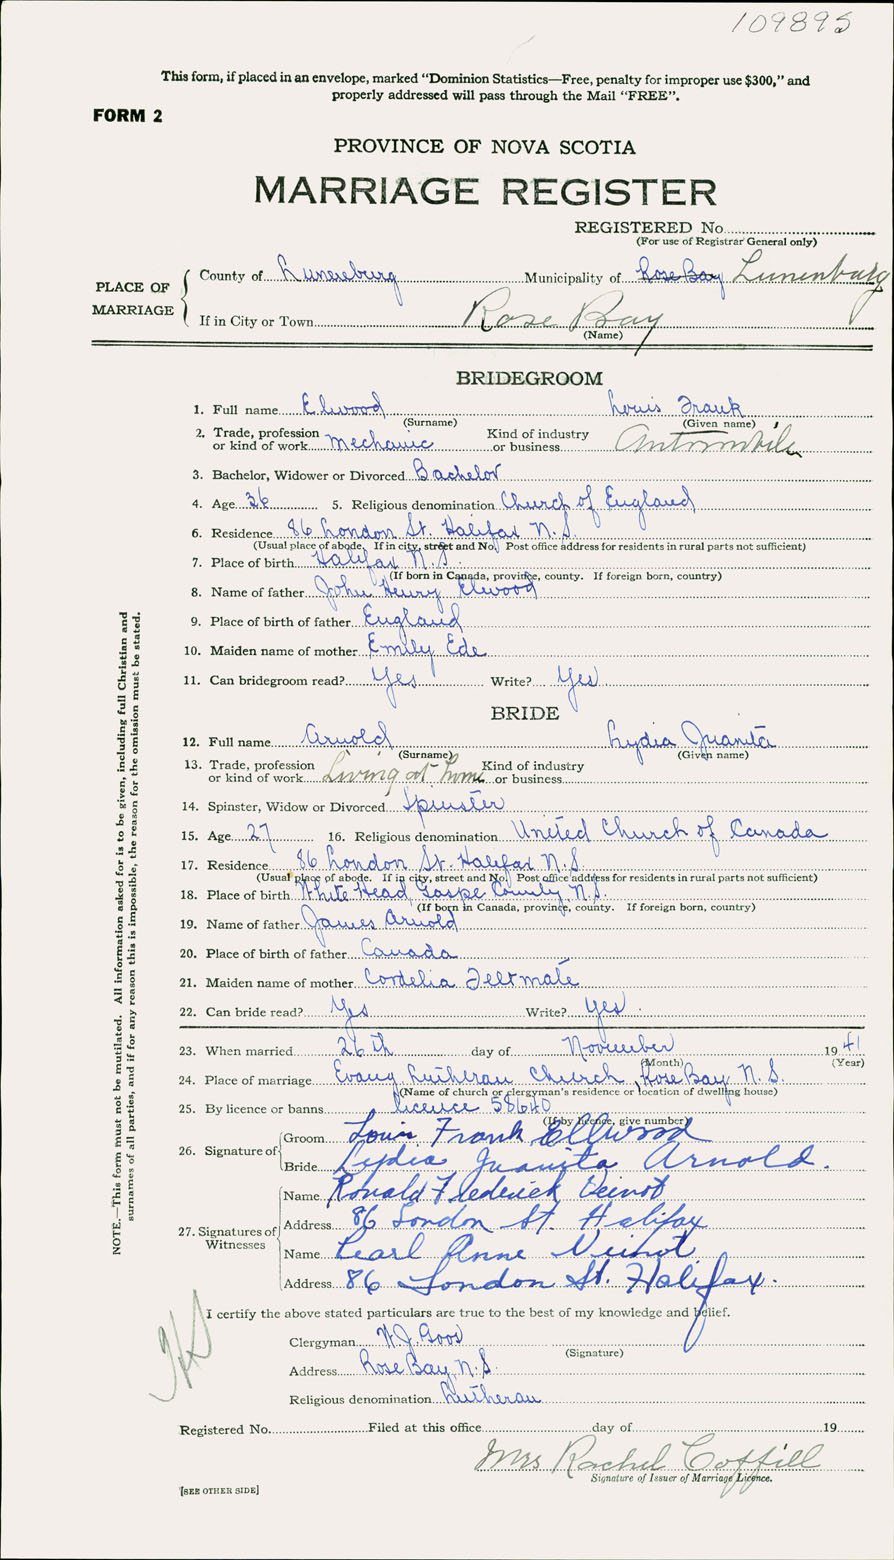 109895
This form, if placed in an envelope, marked “Dominion Statistics—Free, penalty for improper use $300,” and
properly addressed will pass through the Mail “FREE”.
FORM 2
PROVINCE OF NOVA SCOTIA
MARRIAGE REGISTER
REGISTERED No.
(For use of Registrar General only)
PLACE OF MARRIAGE
County of Lunenburg Municipality of Rose Bay Lunenburg
If in City or Town Rose Bay
(Name)
BRIDEGROOM
1. Full name Elwood Louis Frank
(Surname) (Given name)
2. Trade, profession or kind of work Mechanic Kind of industry or business Automobile
3. Bachelor, Widower or Divorced Bachelor
4. Age 36 5. Religious denomination Church of England
6. Residence 86 London St. Halifax N.S.
(Usual place of abode. If in city, street and No. Post office address for residents in rural parts not sufficient)
7. Place of birth Halifax N.S.
(If born in Canada, province, county. If foreign born, country)
8. Name of father John Henry Elwood
9. Place of birth of father England
10. Maiden name of mother Emily Ede
11. Can bridegroom read? Yes Write? Yes
BRIDE
12. Full name Arnold Lydia Juanita
(Surname) (Given name)
13. Trade, profession or kind of work Living at home Kind of industry or business
14. Spinster, Widow or Divorced Spinster
15. Age 27 16. Religious denomination United Church of Canada
17. Residence 86 London St. Halifax N.S.
(Usual place of abode. If in city, street and No. Post office address for residents in rural parts not sufficient)
18. Place of birth White Head, Gaspe County N.S.
(If born in Canada, province, county. If foreign born, country)
19. Name of father James Arnold
20. Place of birth of father Canada
21. Maiden name of mother Cordelia Feltmate
22. Can bride read? Yes Write? Yes
23. When married 26th day of November 1941
(Month) (Year)
24. Place of marriage Evang Lutheran Church, Rose Bay N.S.
(Name of church or clergyman's residence or location of dwelling house)
25. By licence or banns licence 58640
(If by licence, give number)
26. Signature of
Groom Louis Frank Ellwood
Bride Lydia Juanita Arnold.
27. Signatures of Witnesses
Name Ronald Frederick Veinot
Address 86 London St. Halifax
Name Pearl Anne Veinot
Address 86 London St. Halifax.
I certify the above stated particulars are true to the best of my knowledge and belief.
Clergyman W.J. Goos
(Signature)
Address Rose Bay, N.S.
Religious denomination Lutheran
Registered No. Filed at this office day of 19
Mrs Rachel Coffill
Signature of Issuer of Marriage Licence.
[SEE OTHER SIDE]
NOTE.—This form must not be mutilated. All information asked for is to be given, including full Christian and
surnames of all parties, and if for any reason this is impossible, the reason for the omission must be stated.